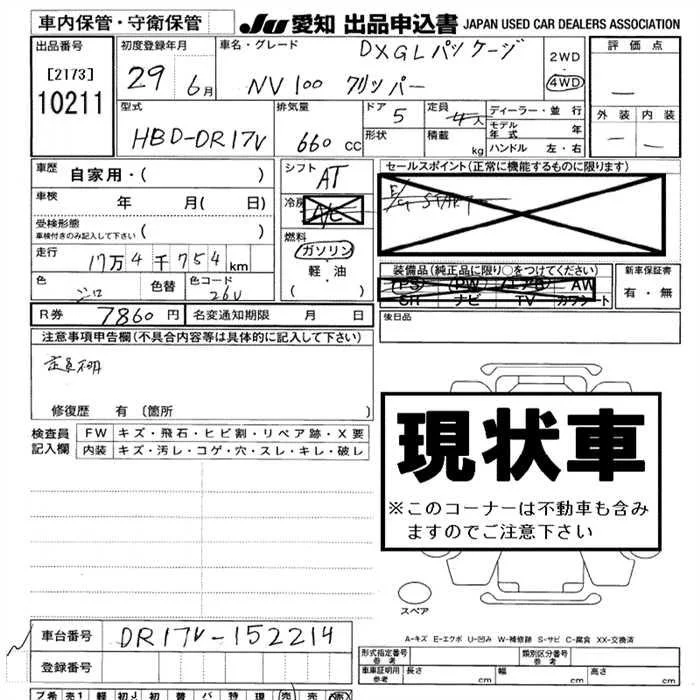 車内保管・守衛保管
JU 愛知 出品申込書 JAPAN USED CAR DEALERS ASSOCIATION
出品番号
[2173]
10211
初度登録年月
29 6月
車名・グレード
DXGLパッケージ
NV100 クリッパー
2WD
・
4WD
評価点
—
外装 内装
— —
型式
HBD-DR17V
排気量
660 cc
ドア 5
形状
定員
積載 kg
ディーラー・並行
モデル年式 年
ハンドル 左・右
車歴
自家用・( )
車検 年 月( 日)
受検形態
車検付きのみ記入して下さい ( )
走行
17万4千754km
色
シロ
色替
色コード
26U
シフト
AT
冷房
A/C
燃料
ガソリン
・
軽・油
( )
セールスポイント(正常に機能するものに限ります)
E/G START
装備品(純正品に限り○をつけてください)
PS PW エアB AW
SR ナビ TV カワシート
新車保証書
有・無
R券 7860円 名変通知期限 月 日
後日品
注意事項申告欄(不具合内容等は具体的に記入して下さい)
定員不明
修復歴 有〔箇所 〕
検査員記入欄
FW キズ・飛石・ヒビ割・リペア跡・X要
内装 キズ・汚レ・コゲ・穴・スレ・キレ・破レ
現状車
※このコーナーは不動車も含み
ますのでご注意下さい
スペア
A-キズ E-エクボ U-凹み W-補修跡 S-サビ C-腐食 XX-交換済
車台番号 DR17V-152214
登録番号
形式指定番号 参考
類別区分番号 参考
車車証明用 参考 長さ cm 幅 cm 高さ cm